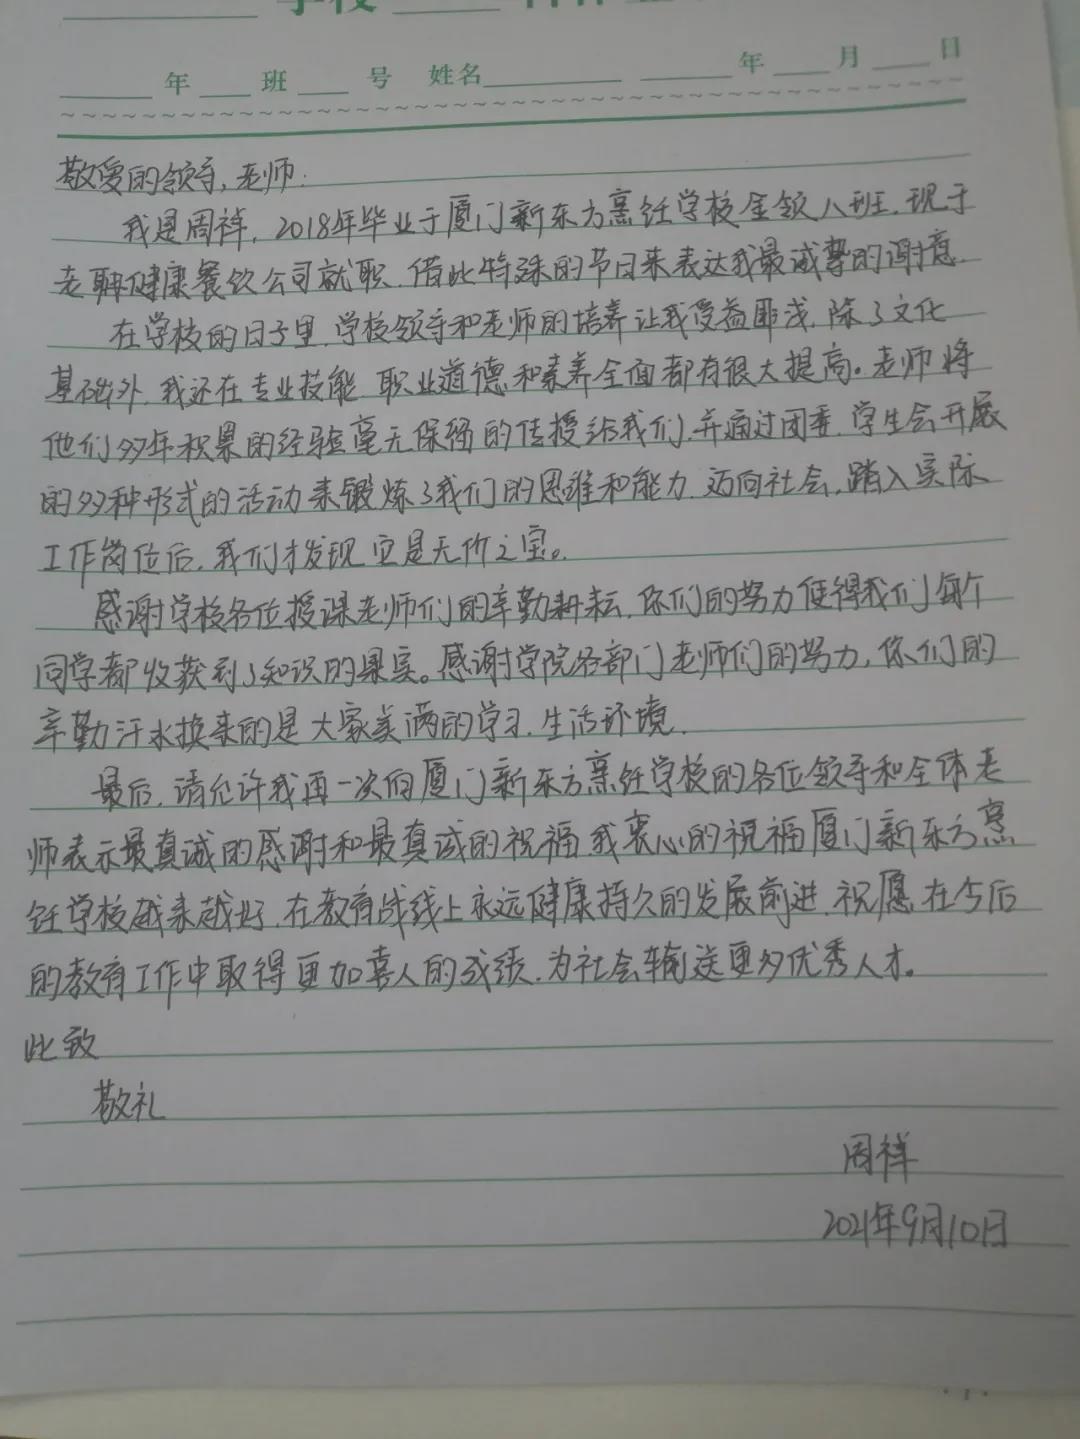 学校
年 班 号 姓名 年 月 日
敬爱的领导,老师:
我是周祥,2018年毕业于厦门新东方烹饪学校金领八班,现于
老聃健康餐饮公司就职,借此特殊的节日来表达我最诚挚的谢意.
在学校的日子里,学校领导和老师的培养让我受益匪浅,除了文化
基础外,我还在专业技能,职业道德和素养全面都有很大提高。老师将
他们多年积累的经验毫无保留的传授给我们,并通过团委,学生会开展
的多种形式的活动来锻炼了我们的思维和能力,迈向社会,踏入实际
工作岗位后,我们才发现它是无价之宝。
感谢学校各位授课老师们的辛勤耕耘,你们的努力使得我们每个
同学都收获到了知识的果实。感谢学院各部门老师们的努力,你们的
辛勤汗水换来的是大家美满的学习,生活环境.
最后,请允许我再一次向厦门新东方烹饪学校的各位领导和全体老
师表示最真诚的感谢和最真诚的祝福,我衷心的祝福厦门新东方烹
饪学校越来越好,在教育战线上永远健康持久的发展前进,祝愿在今后
的教育工作中取得更加喜人的成绩,为社会输送更多优秀人才。
此致
敬礼
周祥
2021年9月10日